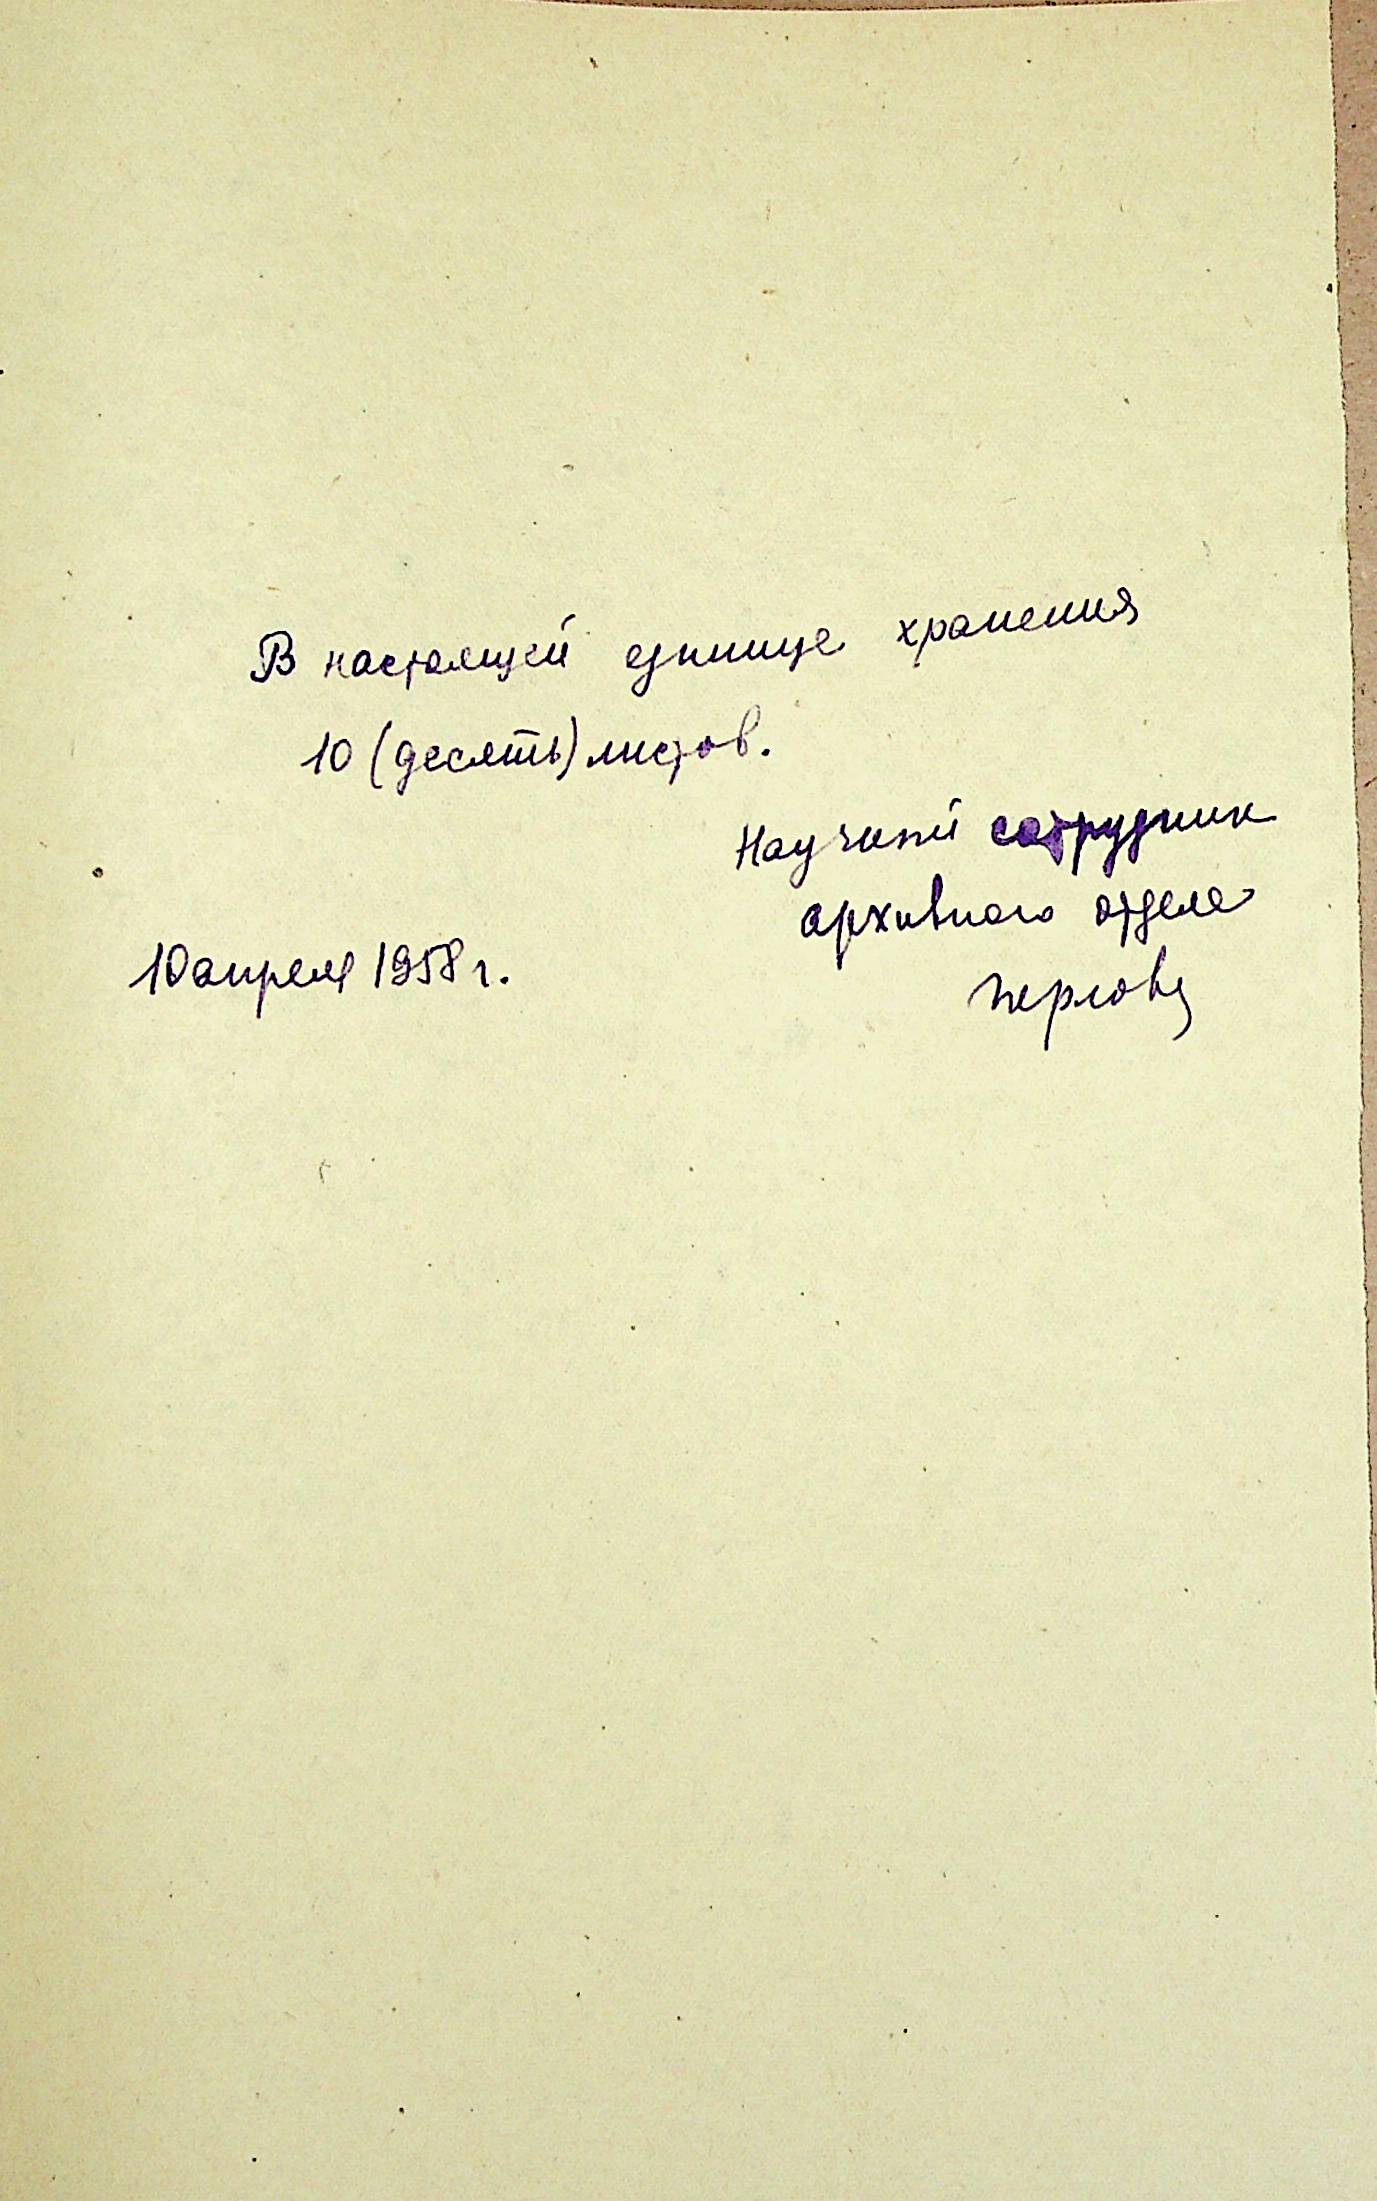 В настоящей единице хранения
10 (десять) листов.
Научный сотрудник
архивного отдела
10 апреля 1958 г.
Перлова